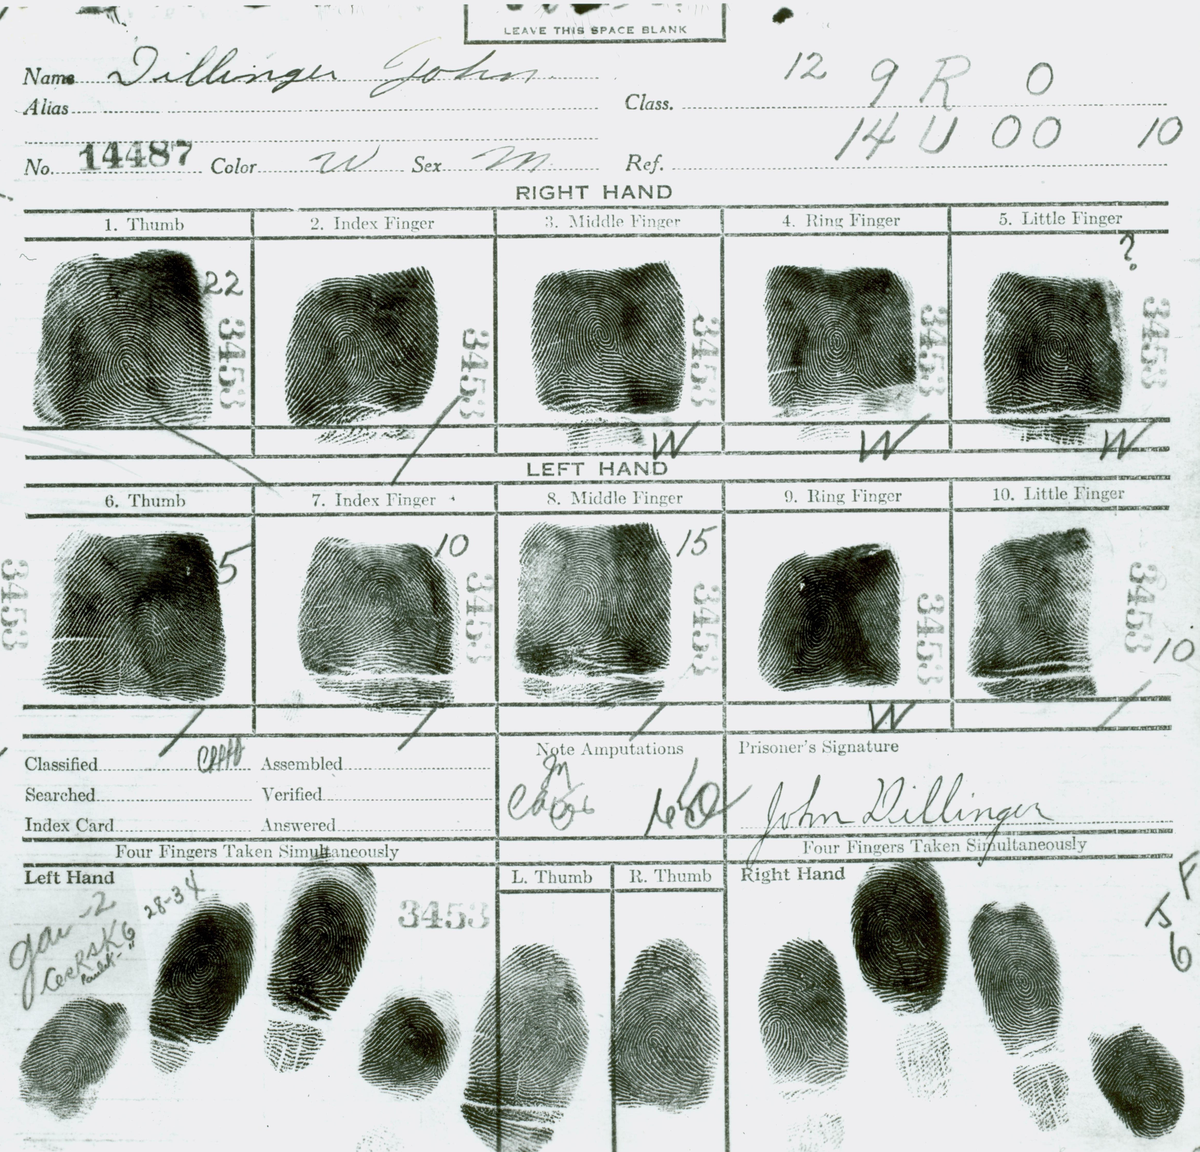 LEAVE THIS SPACE BLANK
Name Dillinger John 12 9 R 0
Alias Class.
14 U 00 10
No. 14487 Color W Sex M. Ref.
RIGHT HAND
1. Thumb 2. Index Finger 3. Middle Finger 4. Ring Finger 5. Little Finger
?
22
3453 3453 3453 3453 3453
W W W
LEFT HAND
6. Thumb 7. Index Finger 8. Middle Finger 9. Ring Finger 10. Little Finger
5 10 15
3453 3453 3453 3453 3453
10
W
Note Amputations Prisoner's Signature
Classified Assembled
Searched Verified
John Dillinger
Index Card Answered
Four Fingers Taken Simultaneously Four Fingers Taken Simultaneously
Left Hand L. Thumb R. Thumb Right Hand
28-34 3453 F
J
6